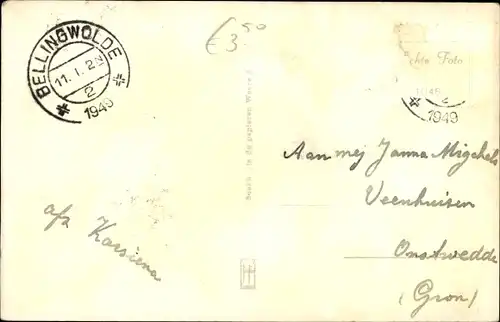 BELLINGWOLDE
11.1.2N
2
1949
€3.50
chte Foto
1949
Aan mej Janna Migchels
Veenhuisen
Onstwedde
(Gron)
afz Karsiena